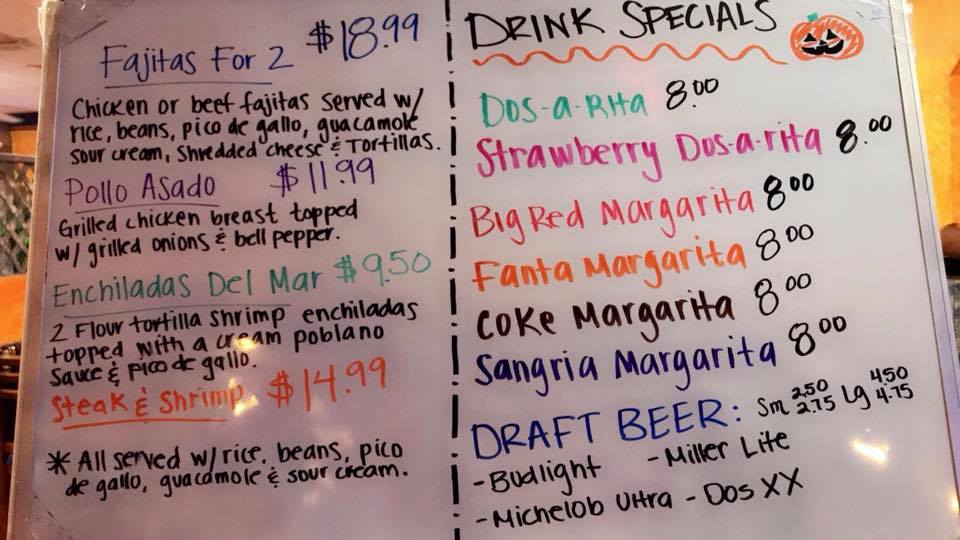 Fajitas For 2 $18.99
Chicken or beef fajitas served w/
rice, beans, pico de gallo, guacamole
sour cream, shredded cheese & Tortillas.
Pollo Asado $11.99
Grilled chicken breast topped
w/ grilled onions & bell pepper.
Enchiladas Del Mar $9.50
2 Flour tortilla shrimp enchiladas
topped with a cream poblano
sauce & pico de gallo.
Steak & Shrimp $14.99
* All served w/ rice, beans, pico
de gallo, guacamole & sour cream.
DRINK SPECIALS
Dos-a-Rita 8.00
Strawberry Dos-a-rita 8.00
Big Red Margarita 8.00
Fanta Margarita 8.00
Coke Margarita 8.00
Sangria Margarita 8.00
DRAFT BEER: Sm 2.50 2.75 Lg 4.50 4.75
- Budlight - Miller Lite
- Michelob Ultra - Dos XX